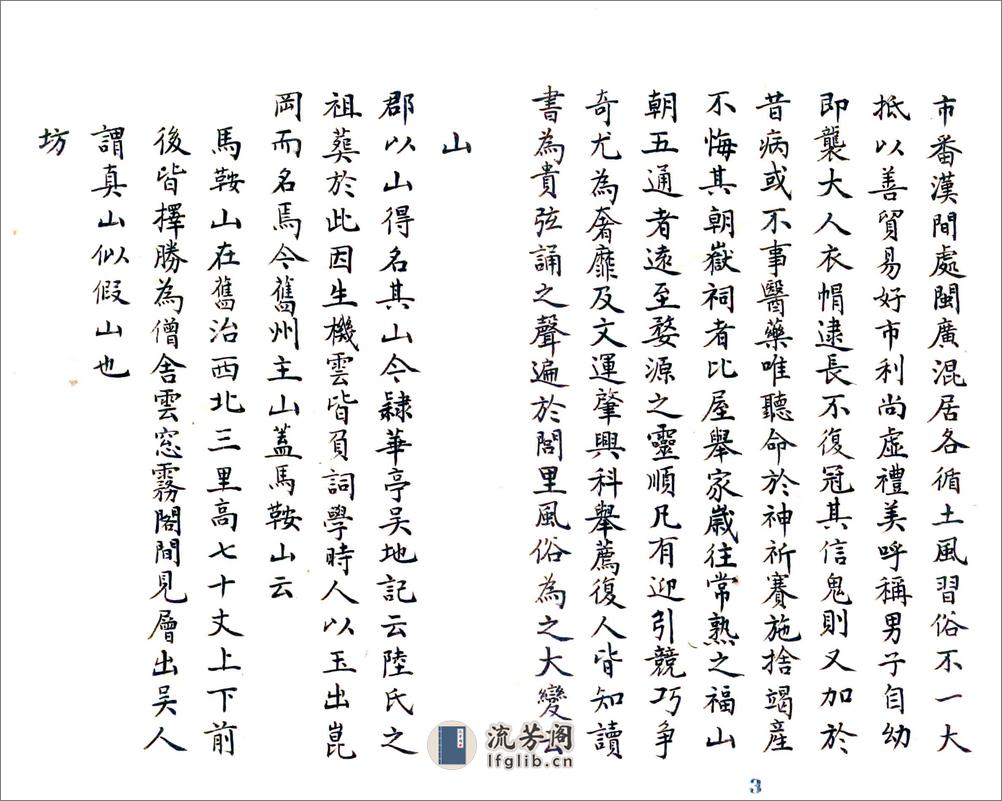 市番漢間處閩廣混居各循土風習俗不一大
抵以善貿易好市利尚虛禮美呼稱男子自幼
即襲大人衣帽逮長不復冠其信鬼則又加於
昔病或不事醫藥唯聽命於神祈賽施捨竭產
不悔其朝嶽祠者比屋舉家歲往常熟之福山
朝五通者遠至婺源之靈順凡有迎引競巧爭
奇尤為奢靡及文運肇興科舉薦復人皆知讀
書為貴弦誦之聲遍於閭里風俗為之大變云
山
郡以山得名其山今隸華亭吳地記云陸氏之
祖葬於此因生機雲皆負詞學時人以玉出崑
岡而名焉今舊州主山蓋馬鞍山云
馬鞍山在舊治西北三里高七十丈上下前
後皆擇勝為僧舍雲窓霧閣間見層出吳人
謂真山似假山也
坊
流芳阁
lfglib.cn
3